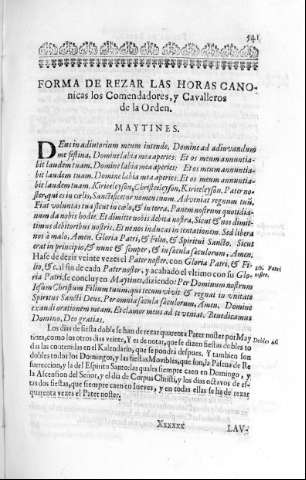 541
FORMA DE REZAR LAS HORAS CANO-
nicas los Comendadores, y Cavalleros
de la Orden.
MAYTINES.
DEus in adiutorium meum intende, Domine ad adiuvandum
me festina, Domine labia mea aperies: Et os meum annuntia-
bit laudem tuam. Domine labia mea aperies: Et os meum annuntia-
bit laudem tuam. Domine labia mea aperies: Et os meum annuntia-
bit laudem tuam. Kirieeleyson, Christeeleyson, Kirieeleyson. Pater no-
ster, qui es in cœlis, Sanctificetur nomen tuum. Adveniat regnum tuũ,
Fiat voluntas tua sicut in cœlo, & in terra, Panem nostrum quotidia-
num da nobis hodie. Et dimitte nobis debita nostra, Sicut & nos dimit-
timus debitoribus nostris. Et ne nos inducas in tentationem. Sed libera
nos à malo. Amen. Gloria Patri, & Filio, & Spiritui Sancto. Sicut
erat in principio, & nunc & semper, & in sæcula sæculorum, Amen.
Hase de dezir veinte vezes el Pater noster, con Gloria Patri, & Fi-
lio, &c. al fin de cada Pater noster, y acabado el vltimo con su Glo-
ria Patri, se concluyen Maytines, diziendo: Per Dominum nostrum
Iesum Christum Filium tuum, qui tecum vivit & regnat in vnitate
Spiritus Sancti Deus, Per omnia sæcula sæculorum, Amen. Domine
exaudi orationem meam. Et clamor meus ad te veniat. Benedicamus
Domino, Deo gratias.
20. Pater
noster.
Los dias de fiesta doble se han de rezar quarenta Pater noster por May
tines, como los otros dias veinte, Y es de notar, que se dizen fiestas de dobles to
das las contenidas en el Kalendario, que se pondrà despues. Y tambien son
dobles todos los Domingos, y las fiestas Movibles, que son, la Pascua de Re-
surreccion, y la del Espiritu Santo: las quales siempre caen en Domingo, y
la Ascension del Señor, y el dia de Corpus Christi, y los dias octavos de es-
tas dos fiestas, que siempre caen en Iueves, y en todas ellas se ha de rezar
quarenta vezes el Pater noster.
Dobles 40
Xxxxxx
LAV-